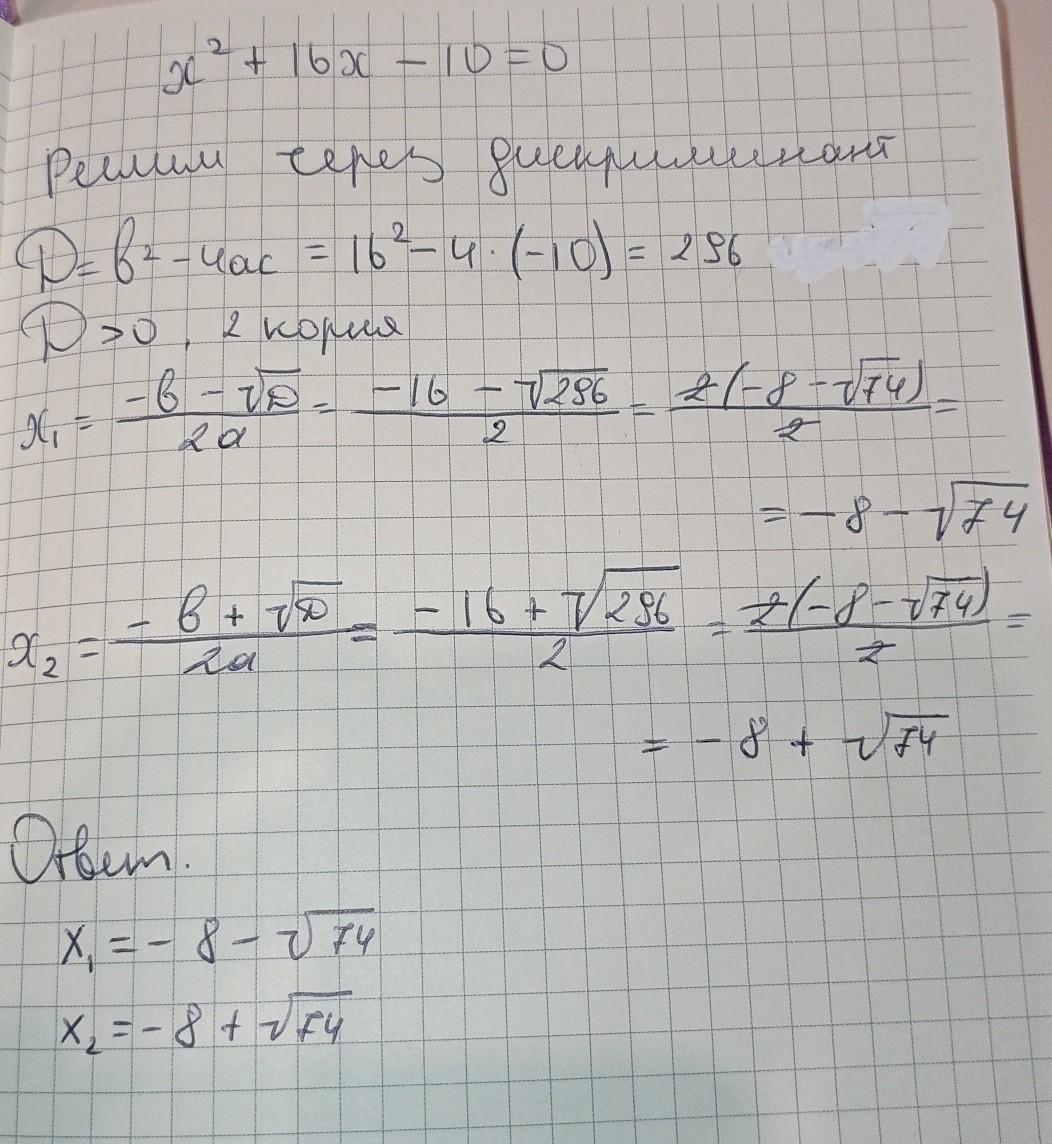 x² + 16x − 10 = 0
Решим через дискриминант
D = b² − 4ac = 16² − 4 · (−10) = 296
D > 0, 2 корня
x₁ = (−b − √D)/(2a) = (−16 − √296)/2 = (2(−8 − √74))/2 =
= −8 − √74
x₂ = (−b + √D)/(2a) = (−16 + √296)/2 = (2(−8 − √74))/2 =
= −8 + √74
Ответ.
x₁ = −8 − √74
x₂ = −8 + √74